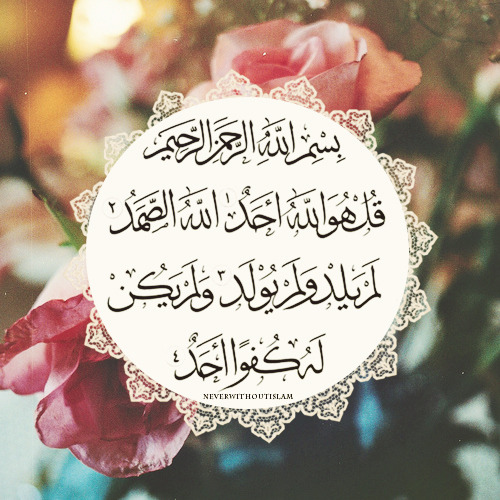 بِسْمِ اللَّهِ الرَّحْمَٰنِ الرَّحِيمِ
قُلْ هُوَ اللَّهُ أَحَدٌ ١ اللَّهُ الصَّمَدُ ٢
لَمْ يَلِدْ وَلَمْ يُولَدْ ٣ وَلَمْ يَكُنْ
لَهُ كُفُوًا أَحَدٌ ٤
NEVERWITHOUTISLAM